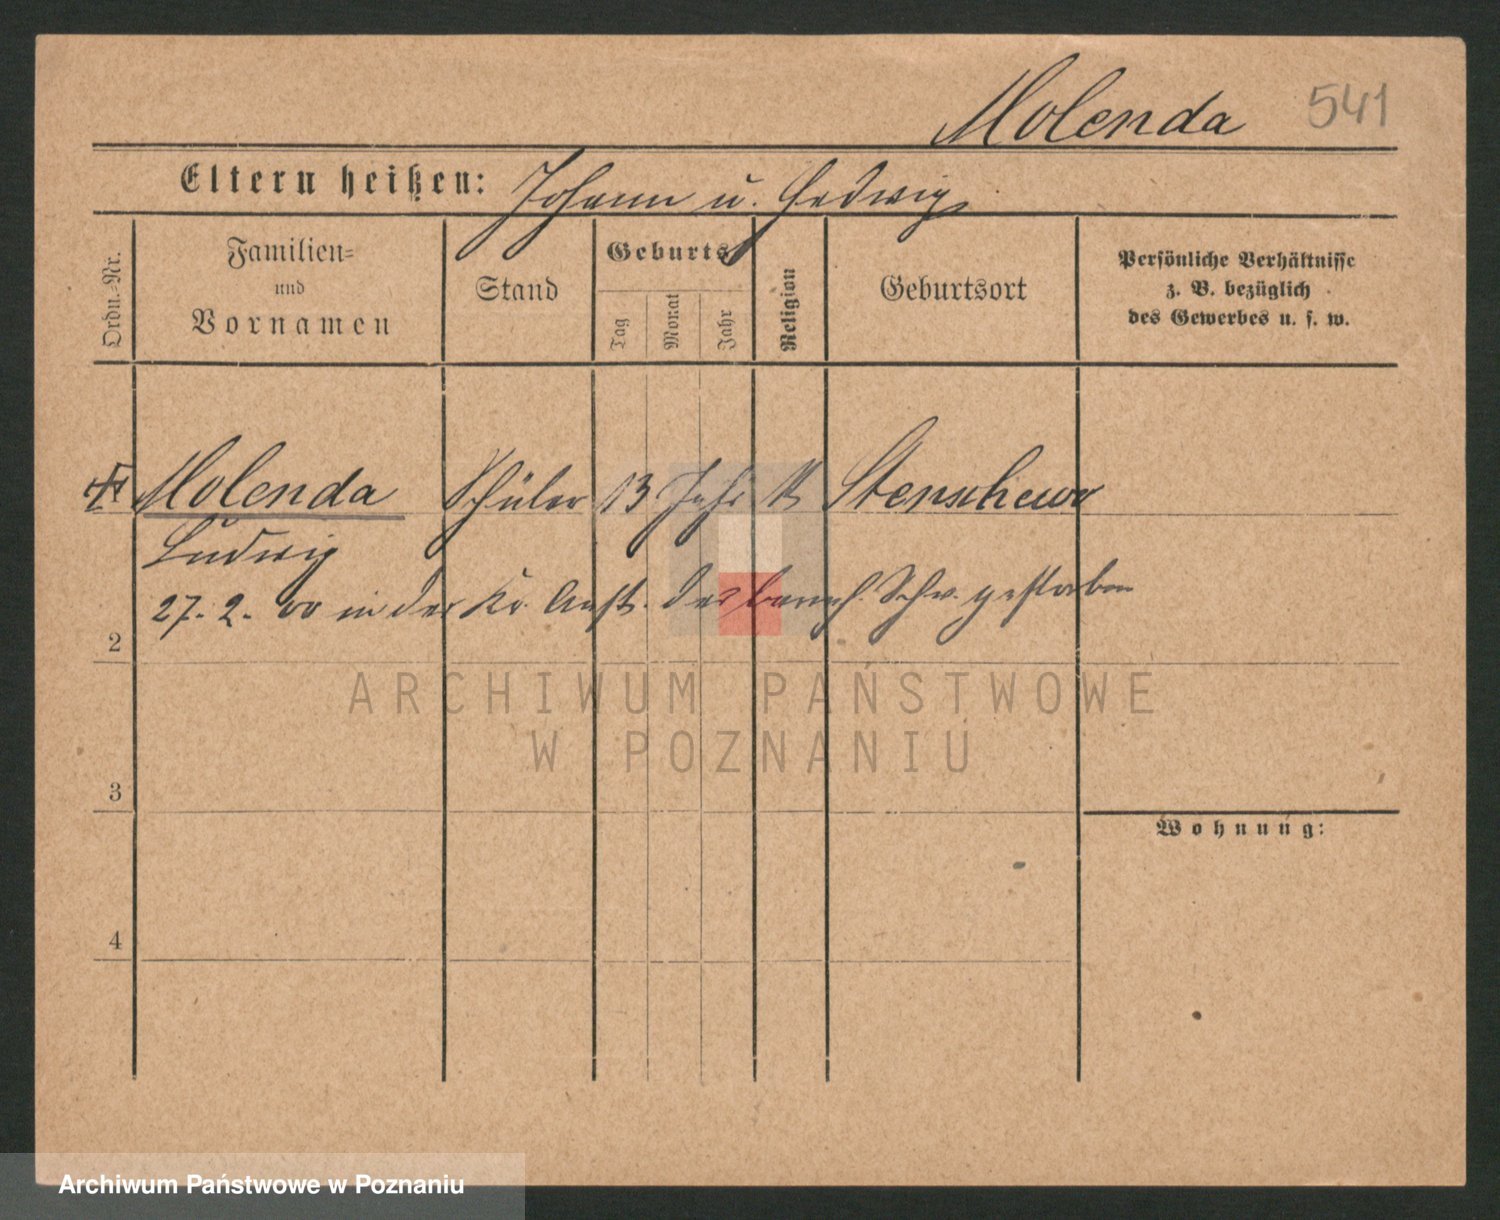 Molenda 541
Eltern heißen: Johann u. Hedwig
Ordn.-Nr.
Familien-
und
Vornamen
Stand
Geburts
Tag
Monat
Jahr
Religion
Geburtsort
Persönliche Verhältnisse
z. B. bezüglich
des Gewerbes u. s. w.
Molenda Schüler 13 Jahr k Stenschewo
Ludwig
27. 2. 00 in der Kr. Anst. der barmh. Schw. gestorben
2
ARCHIWUM PAŃSTWOWE
W POZNANIU
3
Wohnung:
4
Archiwum Państwowe w Poznaniu